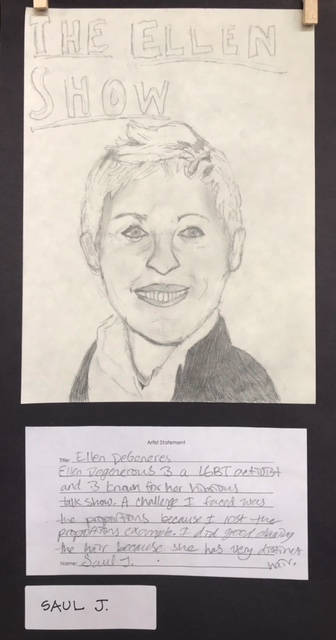 THE ELLEN
SHOW
Artist Statement
Title: Ellen DeGeneres
Ellen Degenerous is a LGBT activist
and is known for her hilarious
talk show. A challenge I faced was
the proportions because I lost the
proportions example. I did good drawing
the hair because she has very distinct
hair.
Name: Saul J.
SAUL J.